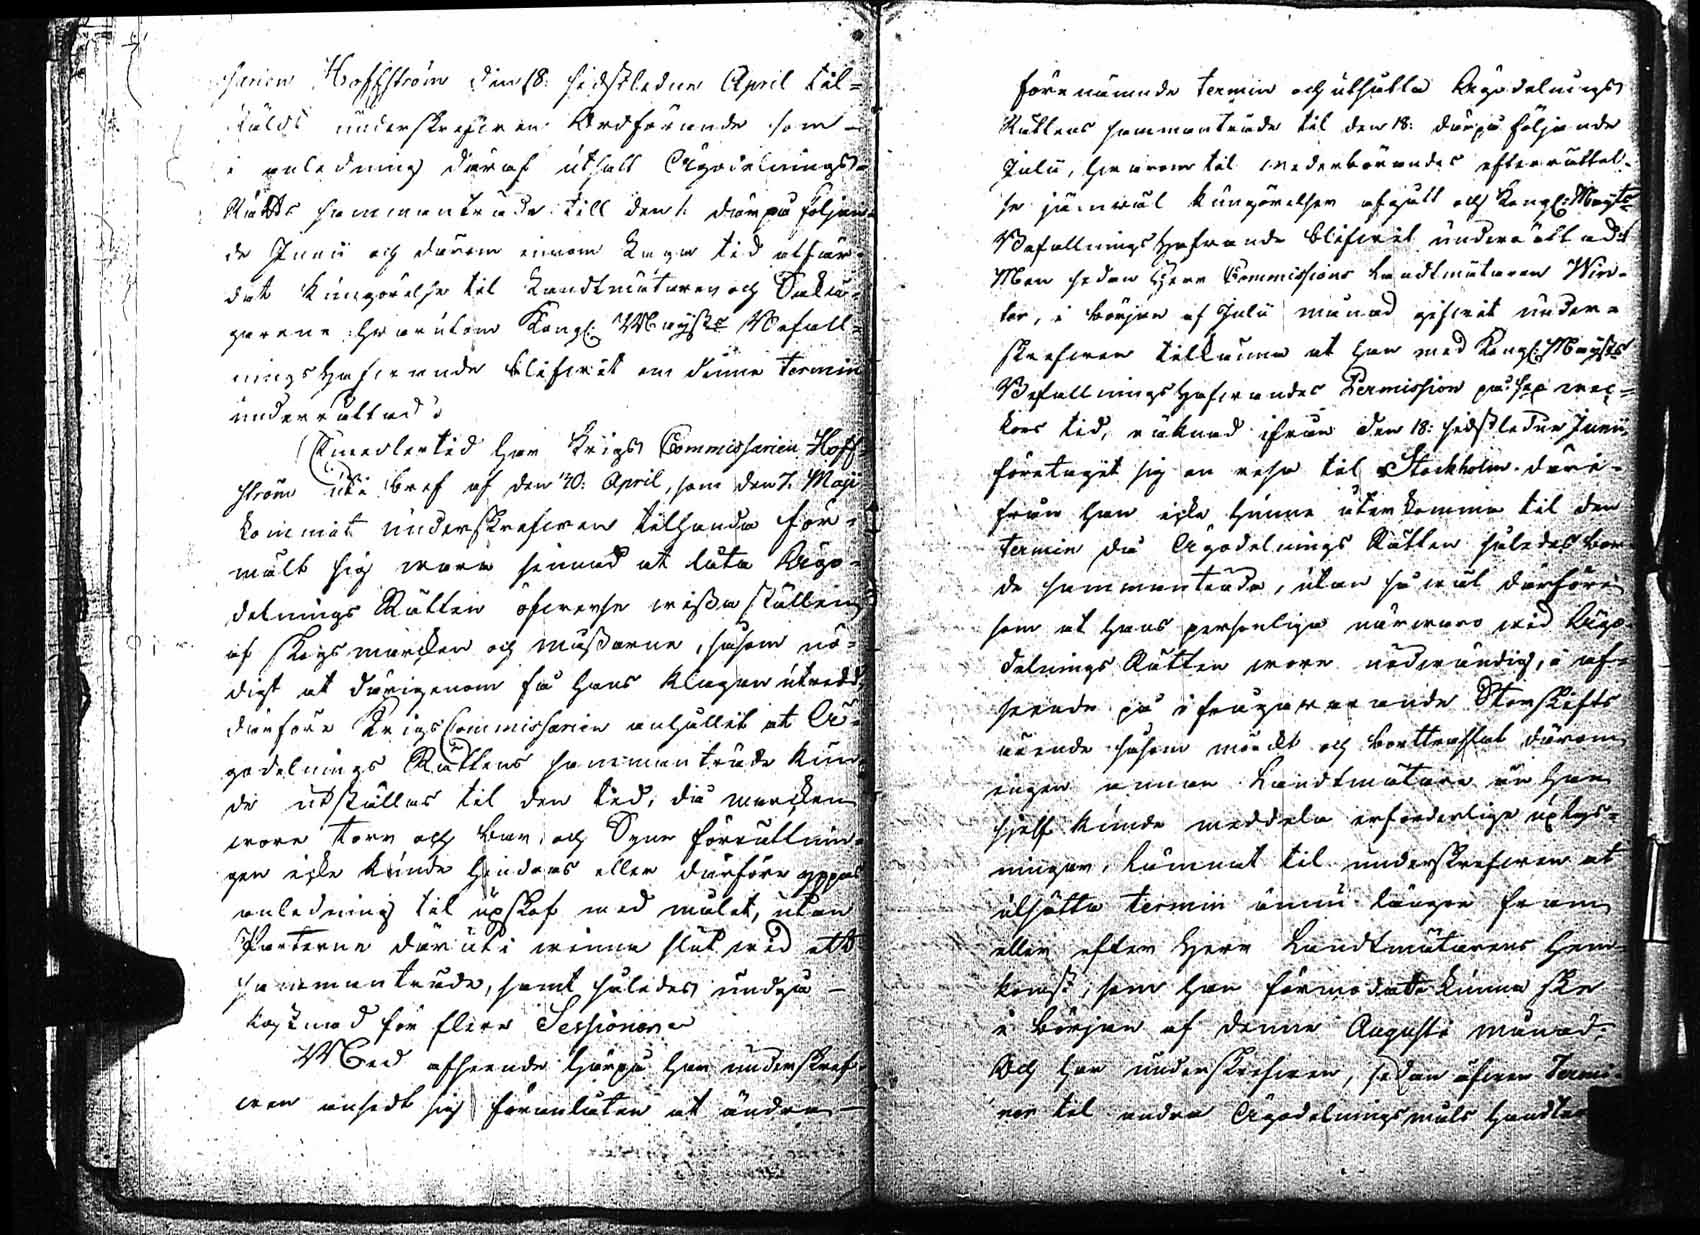 sarien Hoffström den 18: sidstledne April til-
stäld underskrefwen Ordförande som
i anledning däraf utsatt Ägodelnings
Rätts sammanträde till den 1. därpå följan-
de Junii och därom innom Laga tid utfär-
dat kungörelse til Landtmätaren och Sakä-
garene hwarutom Kongl: Maysts Befall-
ningshafwande blifwit om denne termin
underrättad:
Emedlertid har Krigs Commissarien Hoff-
ström uti bref af den 20: April, som den 7. Maji
kommit underskrefwen tilhanda för-
mält sig wara sinnad at låta Ägo-
delnings Rätten öfwerse wissa ställen
af skogsmarcken och mossarne, såsom nö-
digt at därigenom få hans klagan utredd,
därföre Krigs Commissarien anhållit at Ä-
godelnings Rättens sammanträde kun-
de utställas til den tid, då marcken
wore torr och bar, och Syne förrättnin-
gen icke kunde hindras eller därföre yppas
anledning til upskof med målet, utan
Parterne däruti winna slut wid ett
sammanträde, samt således undgå
kostnad för flere Sessioner.
Med afseende härpå har underskref-
wen ansedt sig föranlåten at ändra
förenämnde termin och utsätta Ägodelnings
Rättens sammanträde til den 18: därpå följande
Julii, hwarom til wederbörandes efterrättel-
se jämwäl kungörelser afgått och Kongl: Mayts
Befallningshafwande blifwit underrättad:
Men sedan Herr Commissions Landtmätaren Win-
ter, i början af Julii månad gifwit under-
skrefwen tilkänna at han med Kongl: Maysts
Befallningshafwandes Permission på sex wec-
kors tid, räknad ifrån den 18: sidstledne Junii,
företagit sig en resa til Stockholm, däri-
från han icke hunne återkomma til den
termin då Ägodelnings Rätten således bor-
de sammanträda, utan så wäl därföre
som at hans personliga närwaro wid Ägo-
delnings Rätten wore nödwändig, i af-
seende på ifrågawarande Storskifts
ärende såsom mörckt och
ingen annan Landtmätare än han
sjelf kunde meddela erforderlige uplys-
ningar, hemstäldt til underskrefwen at
utsätta termin ännu längre fram
eller efter Herr Landtmätarens hem-
komst, som han förmodade kunna ske
i början af denne Augusti månad,
Och har underskrefwen, sedan äfwen Termi-
ner til andra Ägodelningsmåls handlan